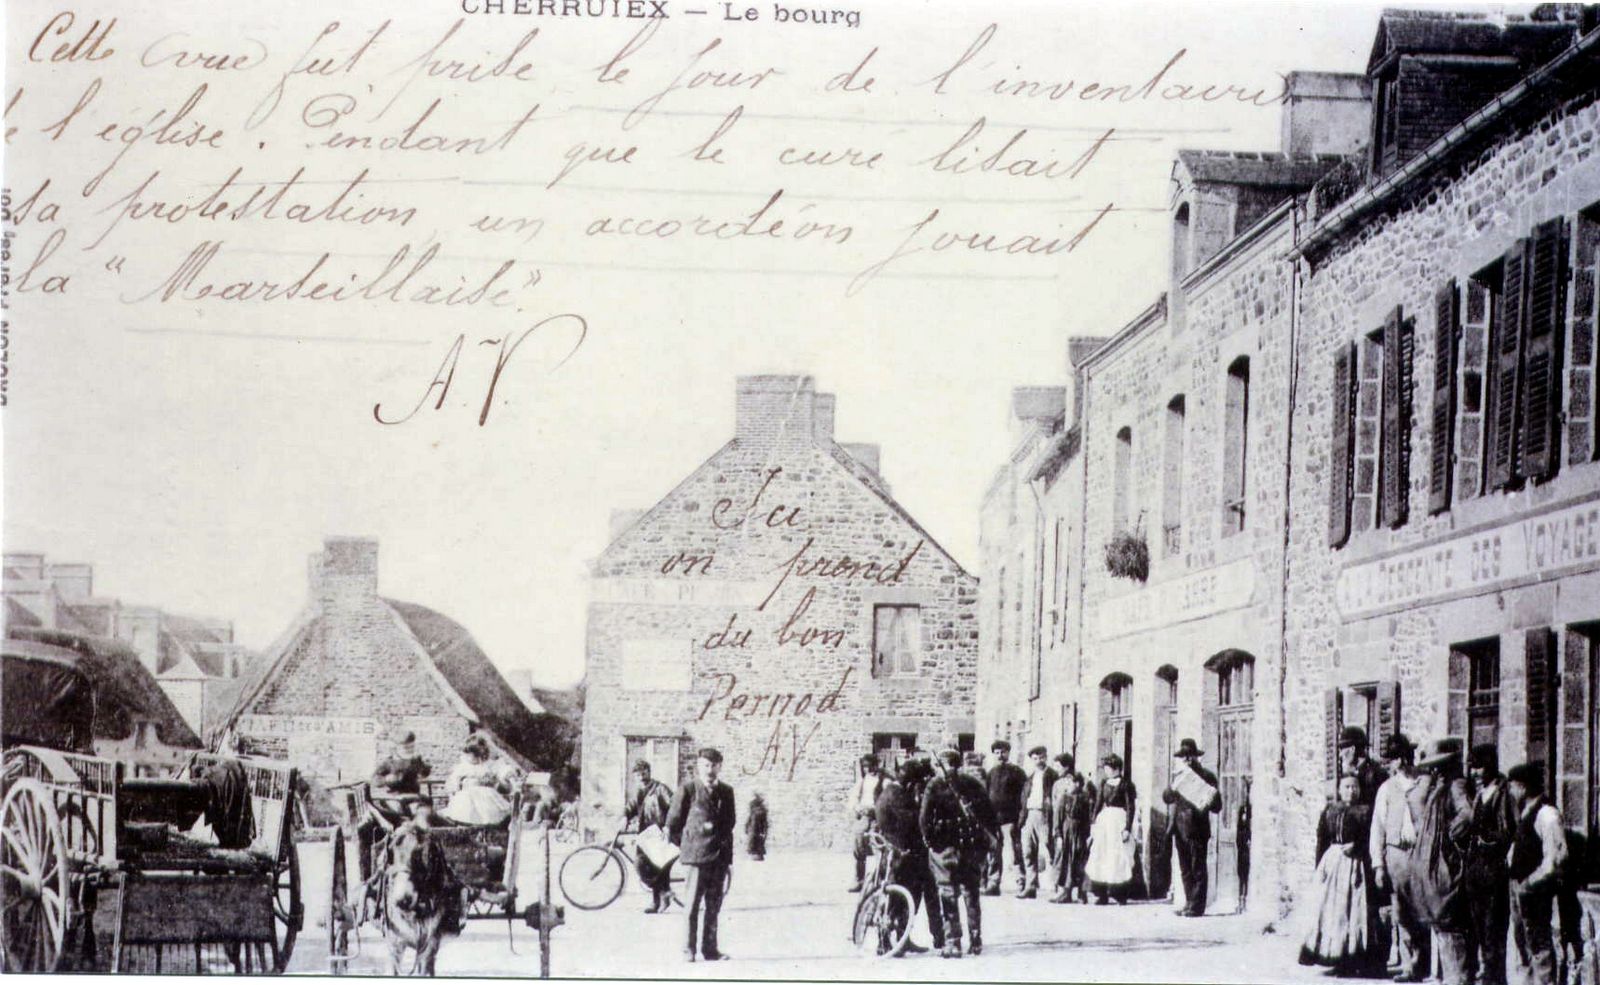 CHERRUIEX – Le bourg
Cette vue fut prise le jour de l'inventaire
de l'église. Pendant que le curé lisait
sa protestation un accordéon jouait
la "Marseillaise".
A.V.
Ici
on prend
du bon
Pernod
A.V
A LA DESCENTE DES VOYAGE
CAFÉ
AMIS
Frères, Dol